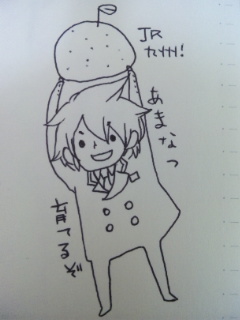 JR
九州!
あまなつ
育てるぞ